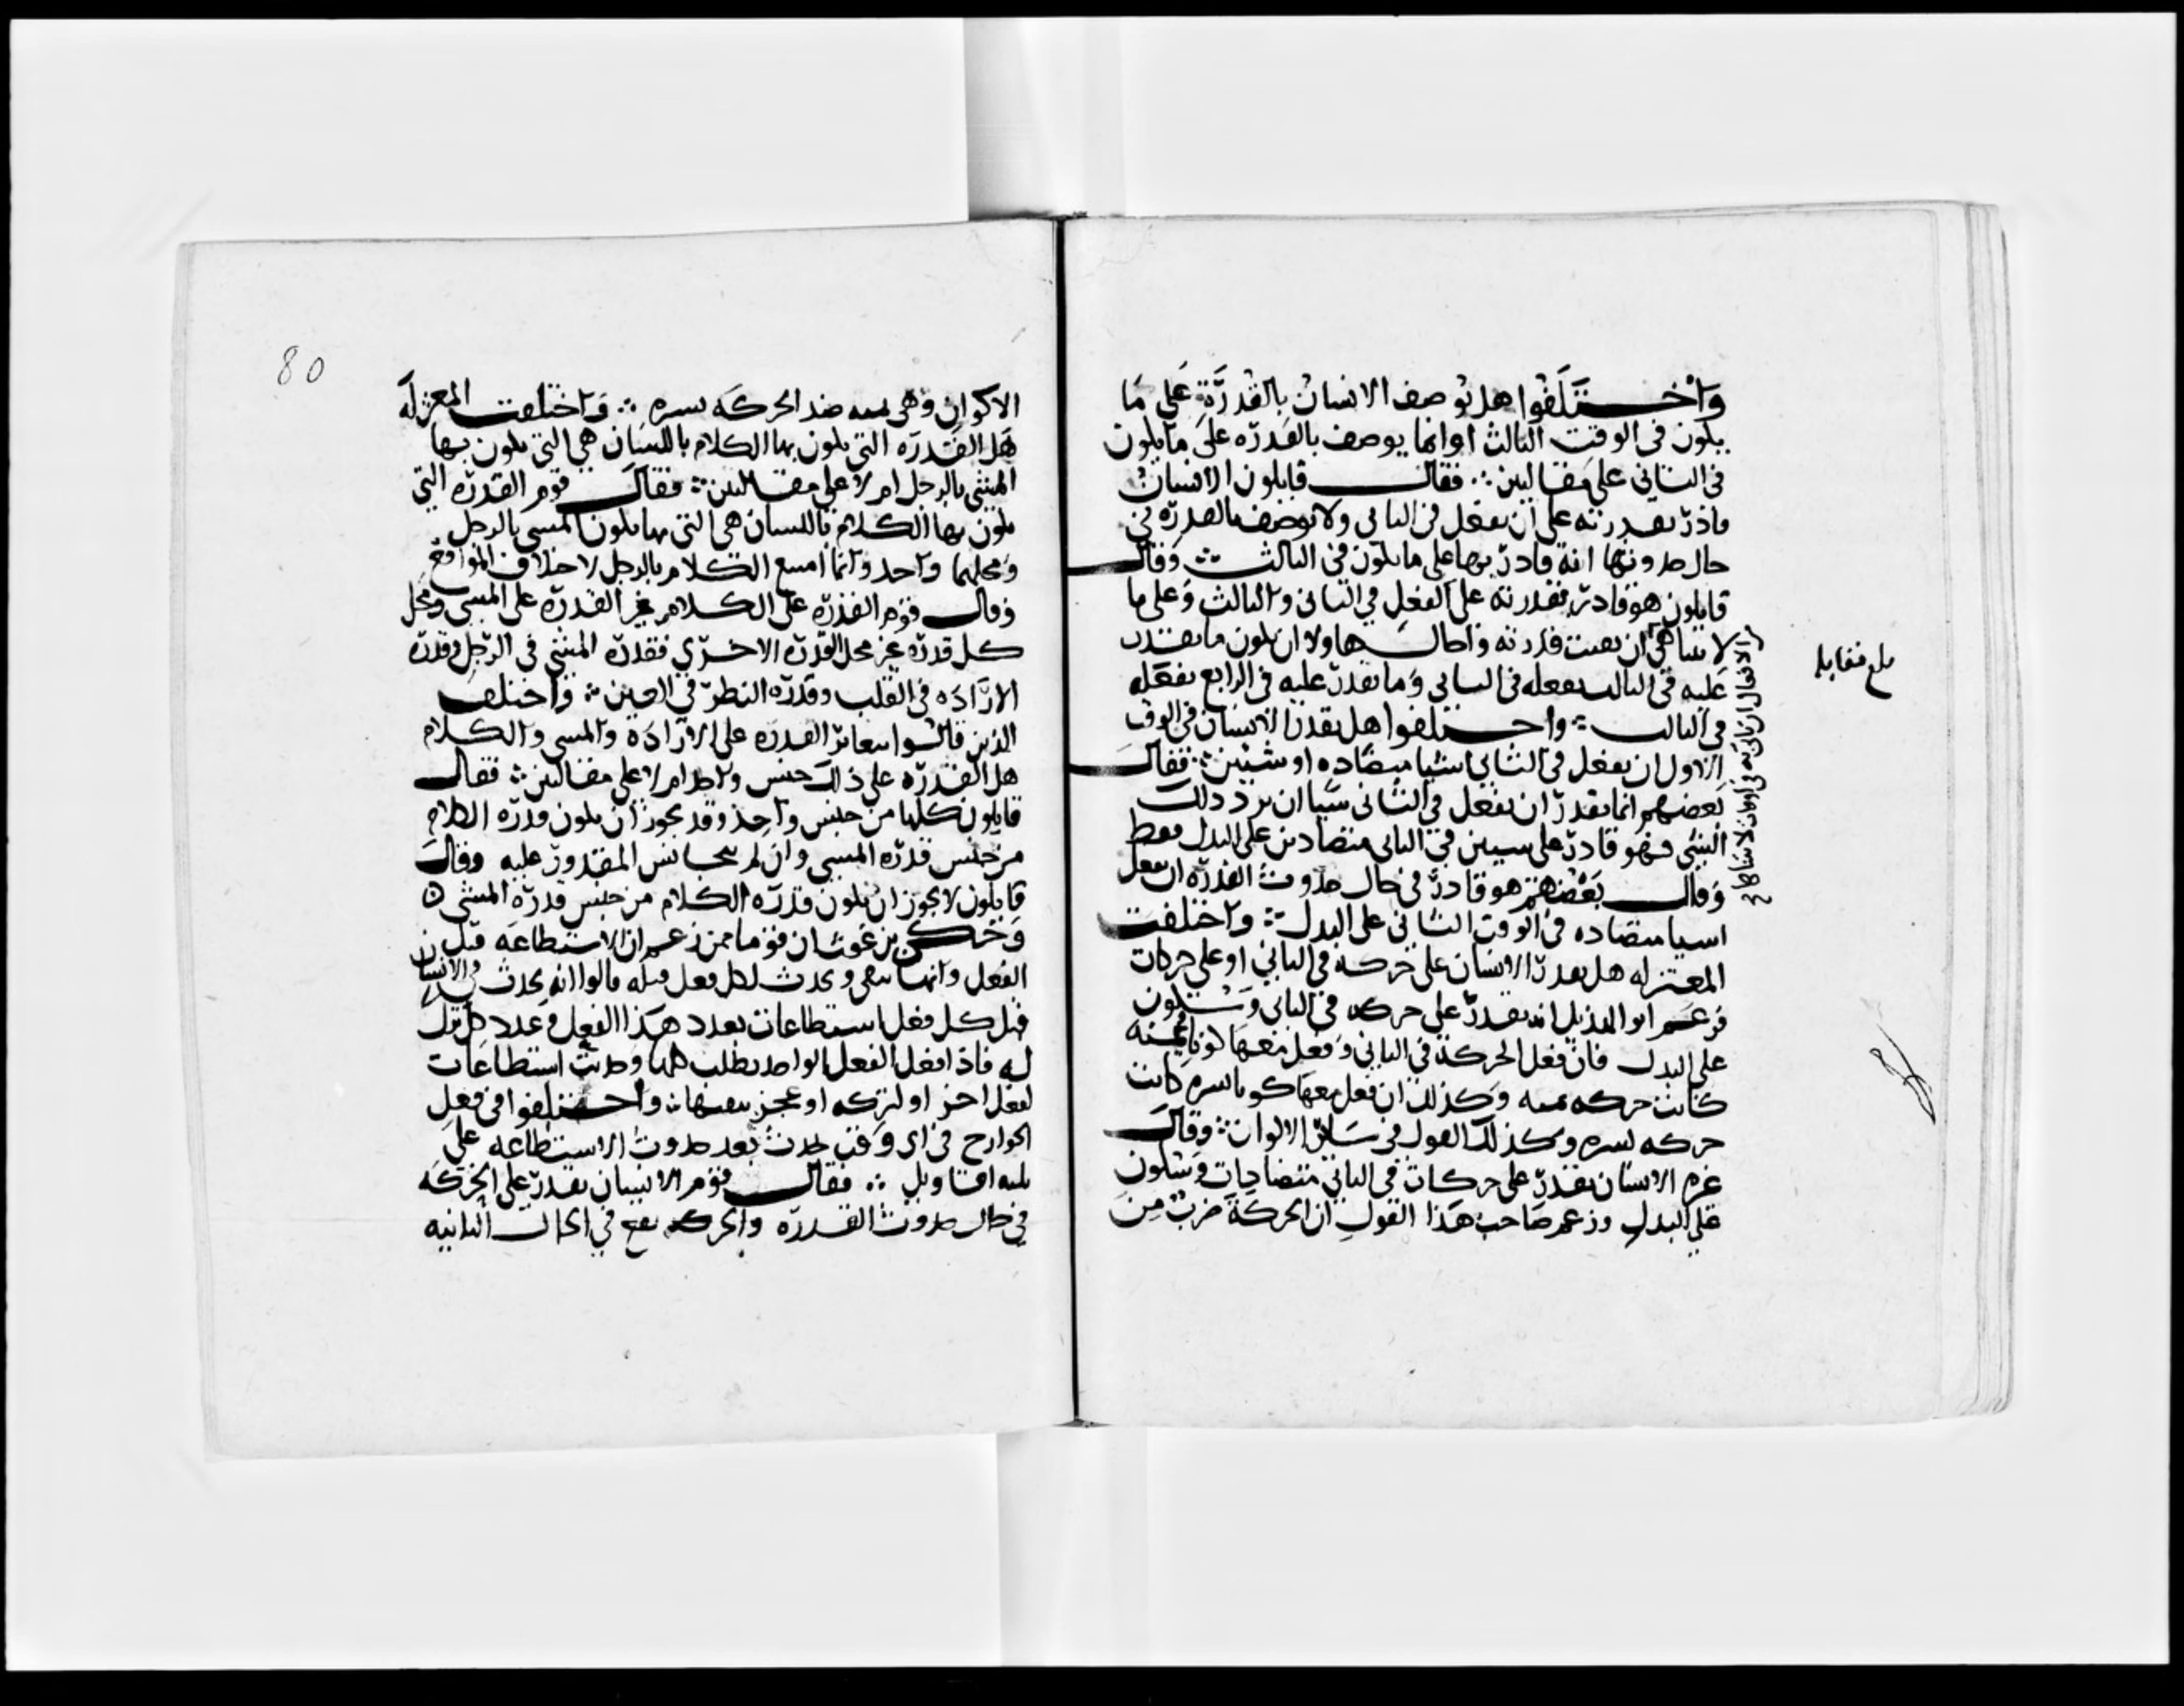 واختلفوا هل يوصف الانسان بالقدرة على ما
يكون في الوقت الثالث او انما يوصف بالقدره على ما يكون
في الثاني على مقالتين ∴ فقال قايلون الانسان
قادر بقدرته على ان يفعل في الثاني ولا يوصف بالقدره في
حال حدوثها انه قادر بها على ما يكون في الثالث ∴ وقال
قايلون هو قادر بقدرته على الفعل في الثاني والثالث وعلى ما
لا يتناهى ان بقيت قدرته واحال هاولا ان يكون ما يقدر
عليه في الثالث يفعله في الثاني وما يقدر عليه في الرابع يفعله
في الثالث ∴ واختلفوا هل يقدر الانسان في الوقت
الاول ان يفعل في الثاني اشيا متضاده او شيئين ∴ فقال
بعضهم انما يقدر ان يفعل في الثاني شيا ان يرد ذلك
الشي فهو قادر على شيين في الثاني متضادين على البدل فقط
وقال بعضهم هو قادر في حال حدوث القدره ان يفعل
اشيا متضاده في الوقت الثاني على البدل ∴ واختلفت
المعتزله هل يقدر الانسان على حركة في الثاني او على حركات
فزعم ابو الهذيل انه يقدر على حركه في الثاني وسكون
على البدل فان فعل الحركة في الثاني وفعل معها كونا يمنه
كانت حركه يمنه وكذلك ان فعل معها كونا يسره كانت
حركه يسره وكذلك القول في سائر الاكوان ∴ وقال
غيره الانسان يقدر على حركات في الثاني متضادات وسكون
على البدل وزعم صاحب هذا القول ان الحركة ضرب من
بلغ مقابله
80
الاكوان وهي يمنه ضد الحركه يسره ∴ واختلفت المعتزله
هل القدره التي يكون بها الكلام باللسان هي التي يكون بها
المشي بالرجل ام لا على مقالتين ∴ فقال قوم القدره التي
يكون بها الكلام باللسان هي التي بها يكون المشي بالرجل
ومحلهما واحد وانما امتنع الكلام بالرجل لاختلاف الموانع
وقال قوم القدره على الكلام غير القدره على المشي ومحل
كل قدره غير محل القدره الاخرى فقدره المشي في الرجل وقدره
الاراده في القلب وقدره النظر في العين ∴ واختلف
الذين قالوا بتغاير القدره على الاراده والمشي والكلام
هل القدره على ذلك جنس واحد ام لا على مقالتين ∴ فقال
قايلون كلها من جنس واحد وقد يجوز ان يكون قدره الكلام
من جنس قدره المشي وان لم يتجانس المقدور عليه وقال
قايلون لا يجوز ان يكون قدره الكلام من جنس قدره المشي ه
وحكى برغوث ان قوما ممن زعم ان الاستطاعه قبل
الفعل وانها تبقى ويحدث لكل فعل قبله قالوا انه يحدث في الانسان
قبل كل فعل استطاعات بعدد هذا الفعل وعدد كل ترك
له فاذا فعل الفعل الواحد بطلت كلها وحدثت استطاعات
لفعل اخر او لتركه او عجز ينفيها ∴ واختلفوا في فعل
الجوارح في اي وقت يحدث بعد حدوث الاستطاعه على
ثلثه اقاويل ∴ فقال قوم الانسان يقدر على الحركه
في حال حدوث القدره والحركه تقع في الحال الثانيه